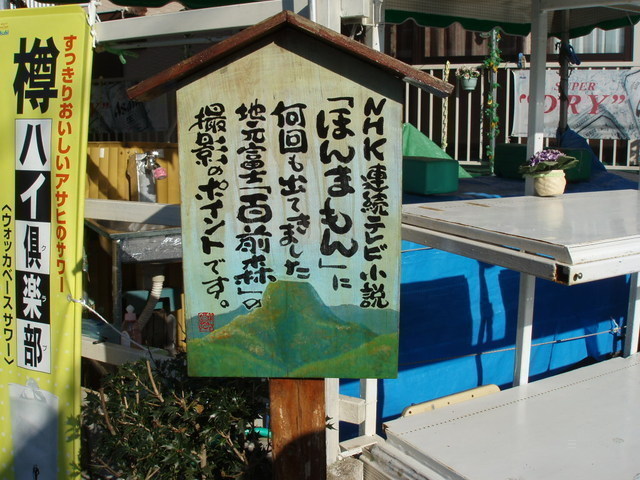 NHK連続テレビ小説
「ほんまもん」に
何回も出てきました
地元富士「百前森」の
撮影のポイントです。
すっきりおいしいアサヒのサワー
樽ハイ倶楽部
クラブ
〈ウォッカベースサワー〉
SUPER
"DRY"